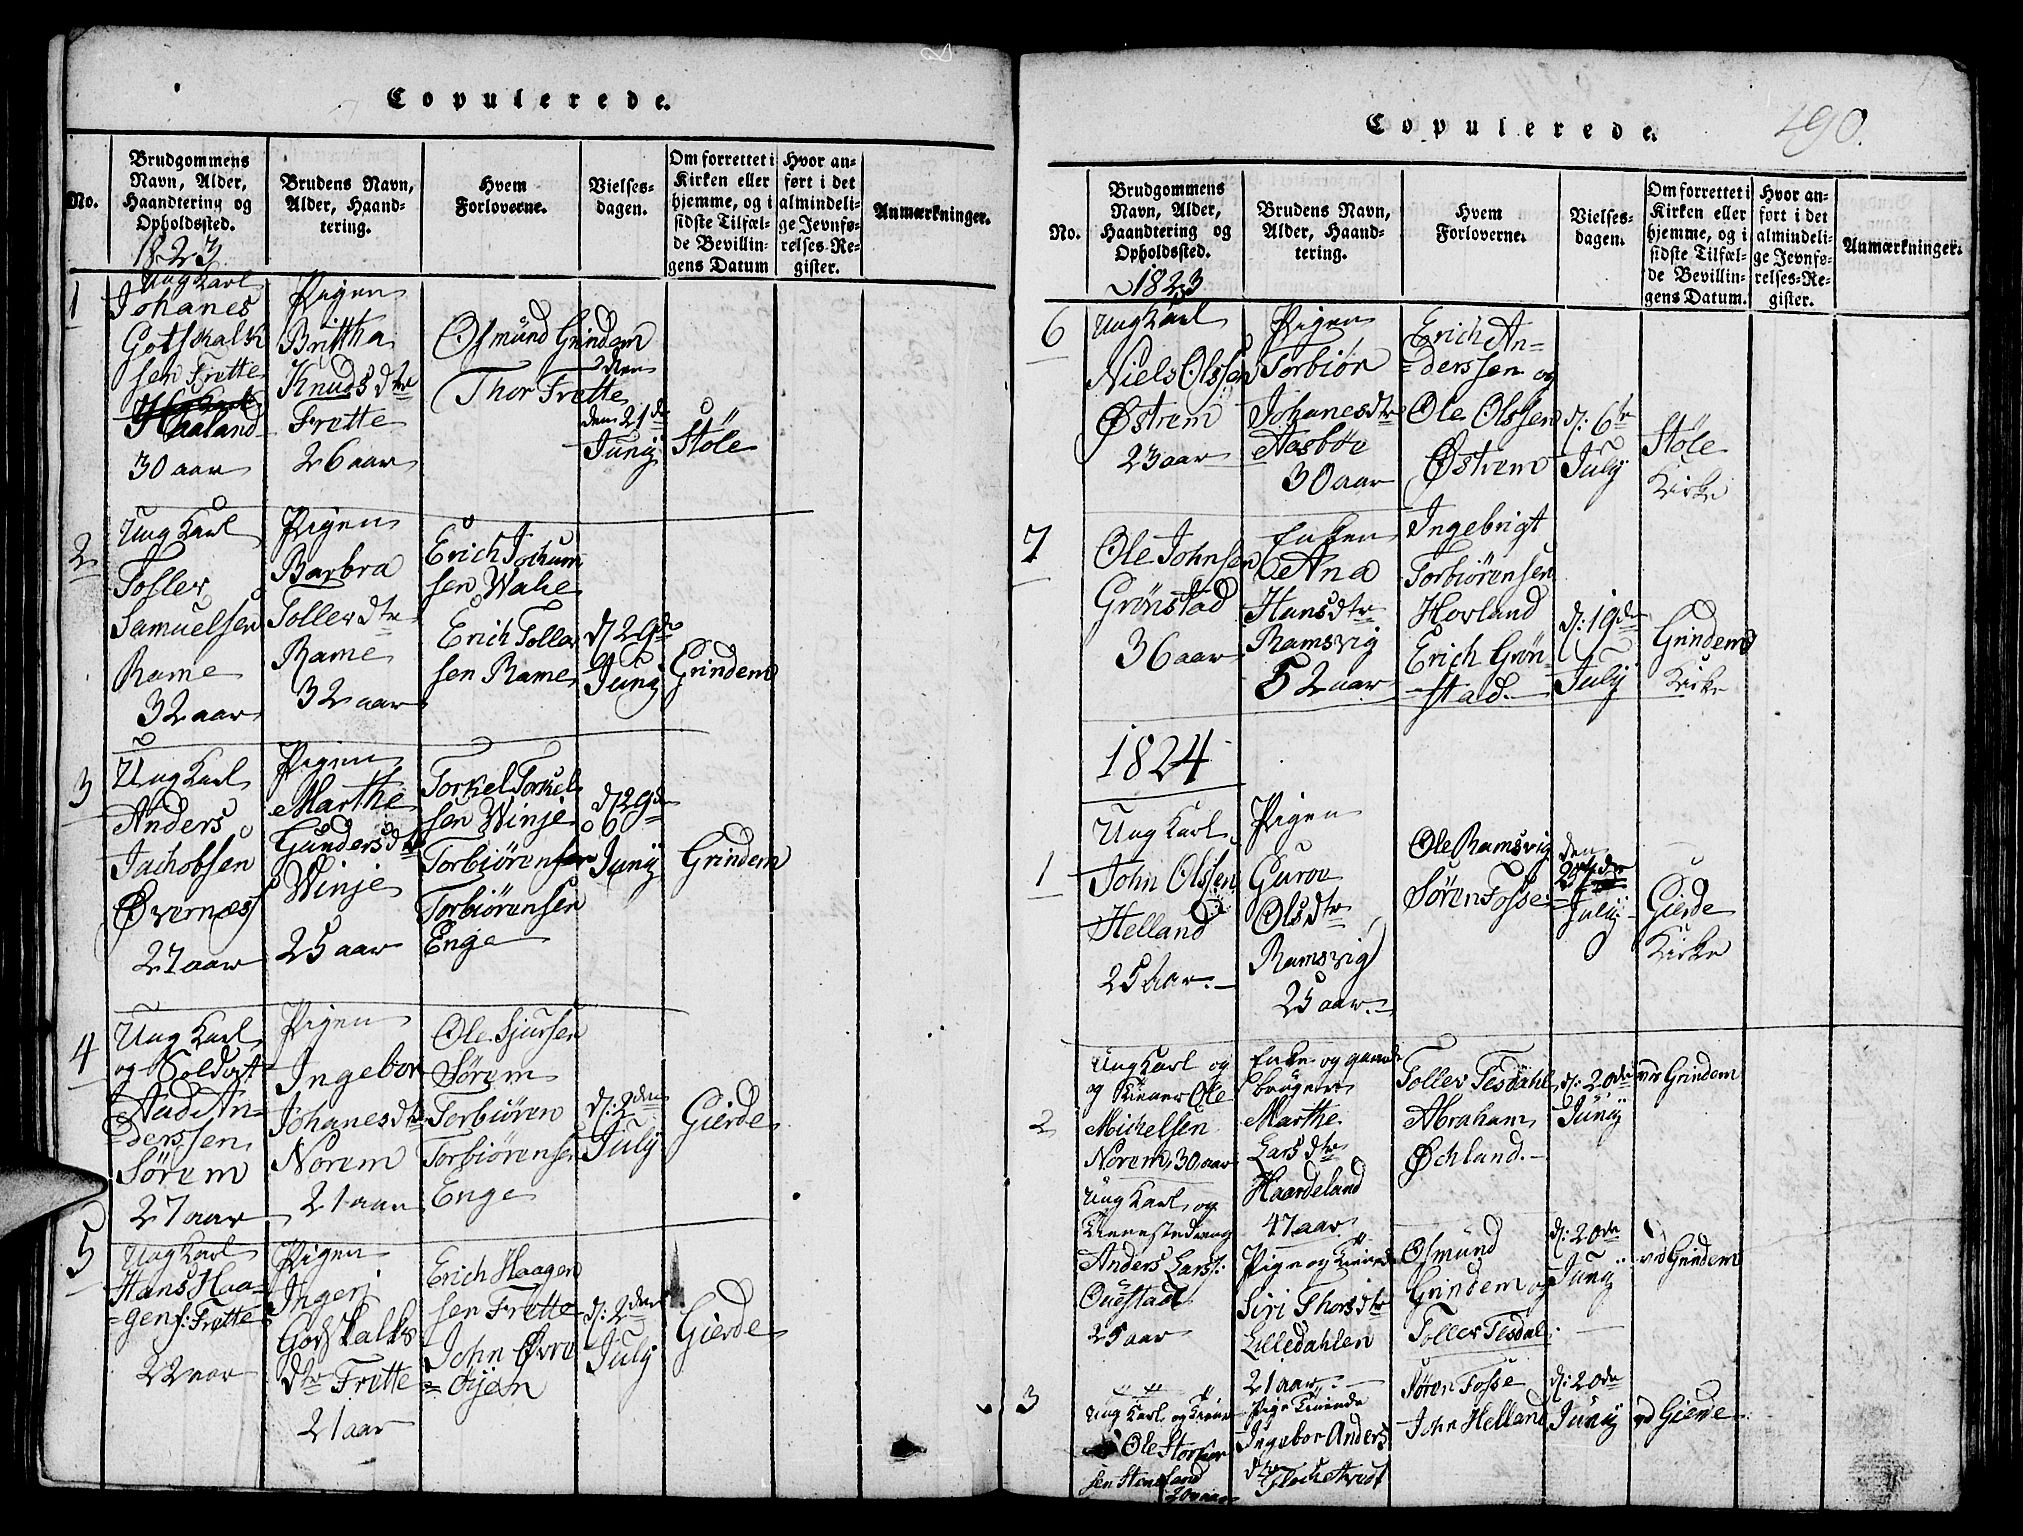 Copulerede.
No.
Brudgommens
Navn, Alder,
Haandtering og
Opholdssted.
Brudens Navn,
Alder, Haand-
tering.
Hvem
Forloverne.
Vielses-
dagen.
Om forrettet i
Kirken eller
hjemme, og i
sidste Tilfæl-
de Bevillin-
gens Datum
Hvor an-
ført i det
almindeli-
ge Jevnfø-
relses-Re-
gister.
Anmærkninger.
1823
1
Ung Karl
Johanes
Gotskalk
sen Frette
Haaland
30 aar
Pigen
Brittha
Knudsdtr
Frette
26 aar
Osmund Grindem
Thor Frette
den 21de
Juny
Støle
2
Ung Karl
Toller
Samuelsen
Rame
32 aar
Pigen
Barbra
Tollerdtr
Rame
32 aar
Erich Jochum
sen Wake
Erich Toller
sen Rame
d: 29de
Juny
Grindem
3
Ung Karl
Anders
Jachobsen
Øvernæss
27 aar
Pigen
Marthe
Gundersdtr
Winje
25 aar
Torkel Torkel
sen Winje
Torbiørensen
Torbiørensen
Enge
d: 29de
Juny
Grindem
4
Ung Karl
og Soldat
Aad An=
derssen
Sørem
27 aar
Pigen
Ingebor
Johanesdtr
Norem
21 aar
Ole Sjursen
Sørem
Torbiøren
Torbiørensen
Enge
d: 2den
July
Gierde
5
Ung Karl
Hans Haa=
=gens: Frette
22 aar
Pigen
Ingeri
Gotskalks
dtr Frette
21 aar
Erich Haagen
sen Frette
John Øvre
=øijen
d: 2den
July
Gierde
190.
Copulerede.
No.
Brudgommens
Navn, Alder,
Haandtering og
Opholdssted.
Brudens Navn,
Alder, Haand-
tering.
Hvem
Forloverne.
Vielses-
dagen.
Om forrettet i
Kirken eller
hjemme, og i
sidste Tilfæl-
de Bevillin-
gens Datum.
Hvor an-
ført i det
almindeli-
ge Jevnfø-
relses-Re-
gister.
Anmærkninger.
1823
6
Ung Karl
Niels Olssen
Østrem
23 aar
Pigen
Torbiør
Johanesdtr
Aasbøe
30 aar
Erich An=
=derssen og
Ole Olssen
Østrem
d: 6te
July
Støle
Kirke
7
Ole Johnsen
Grønstad
36 aar
Enken
Ana
Hansdtr
Ramsvig
52 aar
Ingebrigt
Torbiørensen
Hovland
Erich Grøn
stad.
d: 19de
July
Grindem
Kirke
1824
1
Ung Karl
John Olssen
Helland
25 Aar.
Pigen
Guroe
Olsdtr
Ramsvig
25 aar.
Ole Ramsvig
Søren Fosse
den
July
Gierde
Kirke
2
Ung Karl og
Ole
Michelsen
Norem, 30 aar
Enke og gaard
bruger
Marthe
Larsdtr
Haardeland
47 aar
Toller Tesdahl
Abraham
Øchland.
d: 20de
Juny
ved Grindem
Ung Karl og
Anders Lars:
Oudstad
25 aar
Pige og
Siri Thorsdtr
Lilledahlen
21 aar.
Osmund
Grindem og
Toller Tesdal.
d: 20de
Juny
ved Grindem
3
Ung Karl og
Ole
30 aar
Pige
Ingebor Anders
dtr
Søren Fosse
John Helland
d: 20de
Juny
ved Gierde